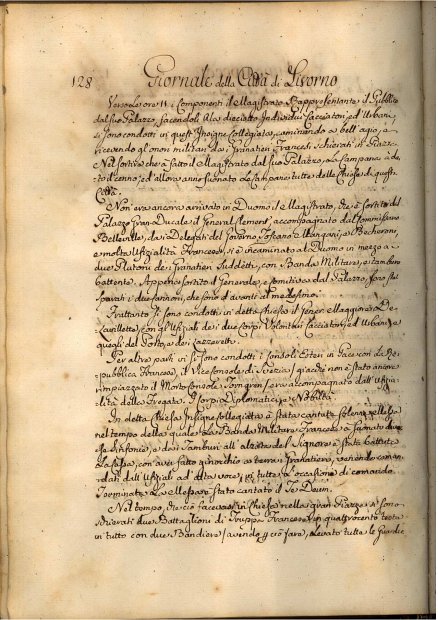 128 Giornale della Città di Livorno
Verso le ore 11. i Componenti il Magistrato Rappresentante il Pubblico
dal suo Palazzo, facendoli Ala diciotto Individui Cacciatori, ed Urbani,
si sono condotti in quest' Insigne Collegiata, caminando a bell' agio, e
ricevendo gl' onori militari da i Granatieri Francesi schierati in Piazza.
Nel sortire che à fatto il Magistrato dal suo Palazzo, la Campana à da-
to il cenno, ed allora anno suonato le Campane tutte delle Chiese di questa
Città.
Non era ancora arrivato in Duomo il Magistrato, che è sortito dal
Palazzo Gran-Ducale il General Clement, accompagnato dal Commissario
Belleville, da i Delegati del Governo Toscano e Bacheroni,
e molta Ufizialità Francese, si è incaminato al Duomo in mezzo a
due Plutoni de i Granatieri Suddetti, con Banda Militare, e tamburo
battente. Appena sortito il Generale, e comitiva dal Palazzo, sono
sparati i due cannoni, che sono d'avanti al medesimo.
Frattanto si sono condotti in detta Chiesa il General Maggiore De
Lavillette, con gl' Ufiziali de i due Corpi Volontari Cacciatori, ed Urbani, e
quegli del Porto, e dei Lazzeretti.
Per altra parte vi si sono condotti i Consoli Esteri in Pace con la Re-
pubblica Francese, il Vice Console di Svezia (giacchè non è stato ancora
rimpiazzato il Morto Console era accompagnato dall' Ufizi-
alità della Fregata. Il Corpo Diplomatico, e Nobiltà.
In detta Chiesa Insigne Collegiata è stata cantata Solenne Messa
nel tempo della quale la Banda Militare Francese à suonato
Sinfonie, e da i Tamburi all' alzata del Signore è stata battuta
la Cassa, con aver fatto ginocchio a terra i Granatieri, venendo coman-
dati dall' Ufiziali ad alta voce, per tutte le occasione di comando.
Terminata la Messa è stato cantato il Te Deum.
Nel tempo, che ciò facevasi in Chiesa nella gran Piazza si sono
schierati due Battaglioni di Truppa Francese in quattrocento
in tutto con due Bandiere (avendo per ciò fare, levato tutte le Guardie